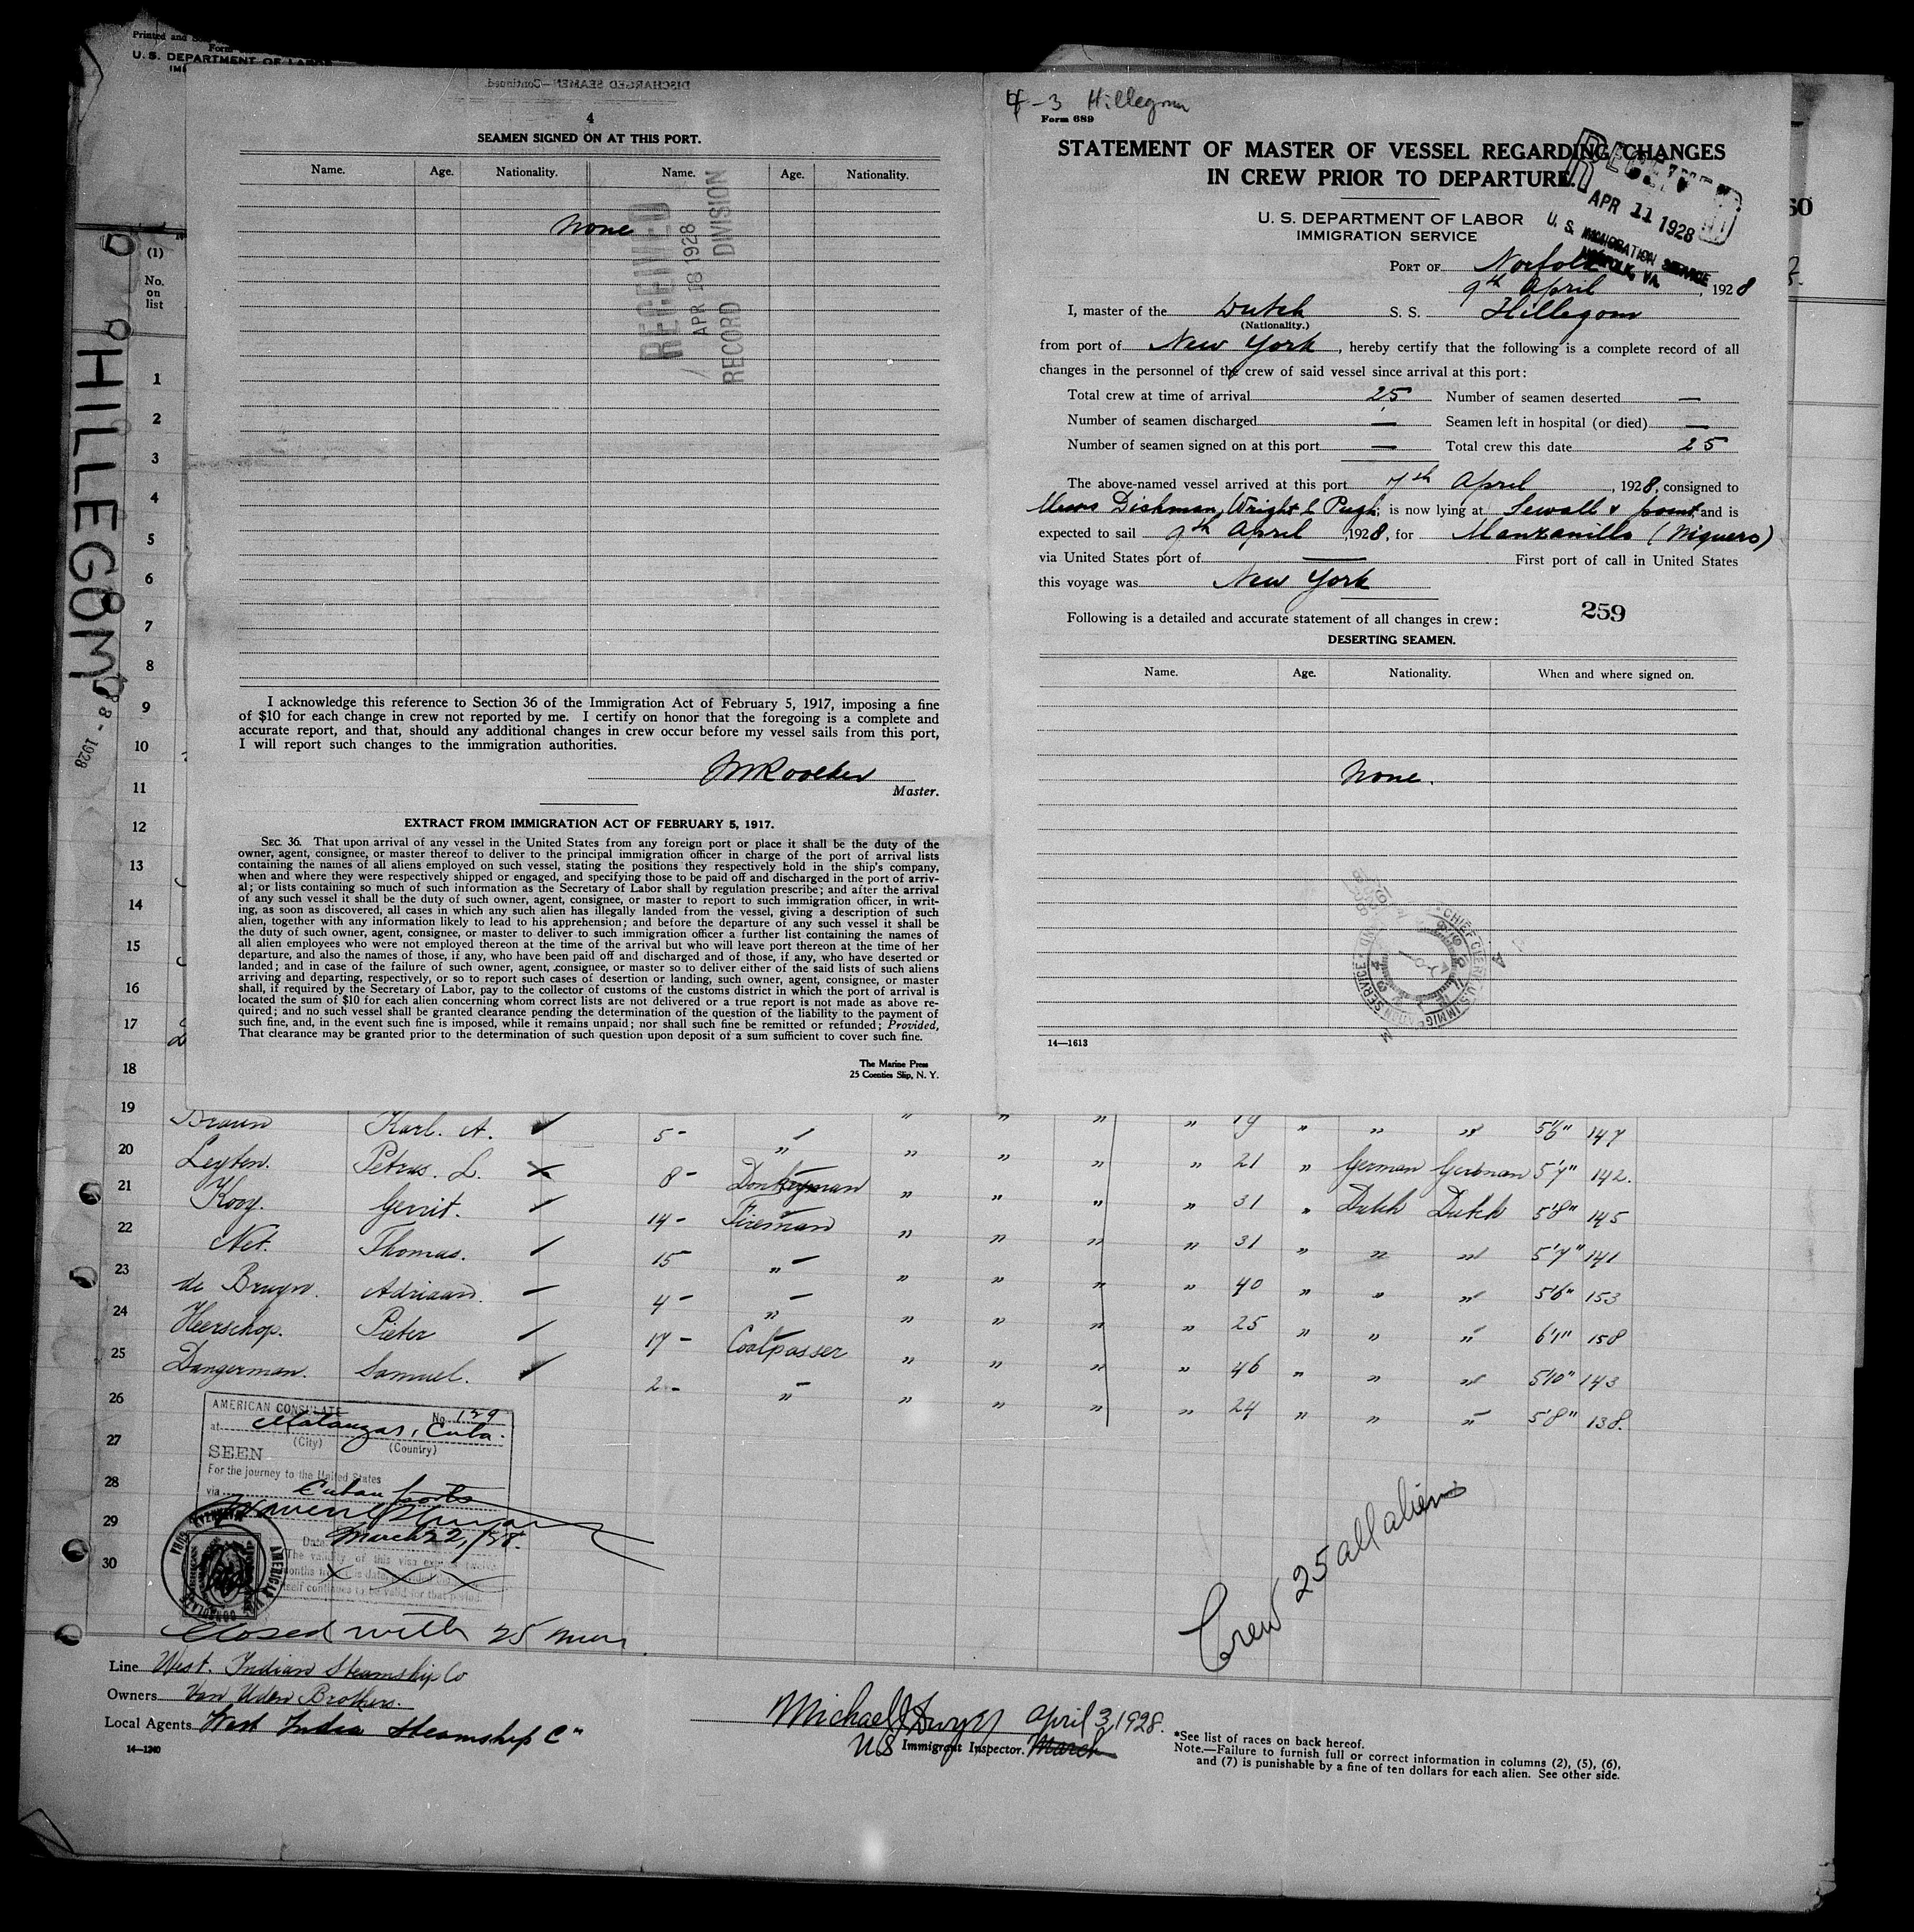 Printed and
Form
U. S. DEPARTMENT OF LABOR
DISCHARGED SEAMEN—Continued.
4
SEAMEN SIGNED ON AT THIS PORT.
Name. Age. Nationality. Name. Age. Nationality.
None
RECEIVED
APR 18 1928
RECORD DIVISION
I acknowledge this reference to Section 36 of the Immigration Act of February 5, 1917, imposing a fine
of $10 for each change in crew not reported by me. I certify on honor that the foregoing is a complete and
accurate report, and that, should any additional changes in crew occur before my vessel sails from this port,
I will report such changes to the immigration authorities.
Master.
EXTRACT FROM IMMIGRATION ACT OF FEBRUARY 5, 1917.
SEC. 36. That upon arrival of any vessel in the United States from any foreign port or place it shall be the duty of the
owner, agent, consignee, or master thereof to deliver to the principal immigration officer in charge of the port of arrival lists
containing the names of all aliens employed on such vessel, stating the positions they respectively hold in the ship's company,
when and where they were respectively shipped or engaged, and specifying those to be paid off and discharged in the port of arriv-
al; or lists containing so much of such information as the Secretary of Labor shall by regulation prescribe; and after the arrival
of any such vessel it shall be the duty of such owner, agent, consignee, or master to report to such immigration officer, in writ-
ing, as soon as discovered, all cases in which any such alien has illegally landed from the vessel, giving a description of such
alien, together with any information likely to lead to his apprehension; and before the departure of any such vessel it shall be
the duty of such owner, agent, consignee, or master to deliver to such immigration officer a further list containing the names of
all alien employees who were not employed thereon at the time of the arrival but who will leave port thereon at the time of her
departure, and also the names of those, if any, who have been paid off and discharged and of those, if any, who have deserted or
landed; and in case of the failure of such owner, agent, consignee, or master so to deliver either of the said lists of such aliens
arriving and departing, respectively, or so to report such cases of desertion or landing, such owner, agent, consignee, or master
shall, if required by the Secretary of Labor, pay to the collector of customs of the customs district in which the port of arrival is
located the sum of $10 for each alien concerning whom correct lists are not delivered or a true report is not made as above re-
quired; and no such vessel shall be granted clearance pending the determination of the question of the liability to the payment of
such fine, and, in the event such fine is imposed, while it remains unpaid; nor shall such fine be remitted or refunded; Provided,
That clearance may be granted prior to the determination of such question upon deposit of a sum sufficient to cover such fine.
The Marine Press
25 Coenties Slip, N. Y.
4-3 Hillegom
Form 689
STATEMENT OF MASTER OF VESSEL REGARDING CHANGES
IN CREW PRIOR TO DEPARTURE.
RECEIVED
APR 11 1928
U. S. IMMIGRATION SERVICE
NORFOLK, VA.
U. S. DEPARTMENT OF LABOR
IMMIGRATION SERVICE
PORT OF Norfolk
9th April, 1928
I, master of the Dutch S. S. Hillegom
(Nationality.)
from port of New York, hereby certify that the following is a complete record of all
changes in the personnel of the crew of said vessel since arrival at this port:
Total crew at time of arrival 25 Number of seamen deserted —
Number of seamen discharged — Seamen left in hospital (or died) —
Number of seamen signed on at this port — Total crew this date 25
The above-named vessel arrived at this port 7th April, 1928, consigned to
Messrs Dishman, Wright & Pugh; is now lying at Sewalls point and is
expected to sail 9th April, 1928, for Manzanillo (Niquero)
via United States port of — First port of call in United States
this voyage was New York
259
Following is a detailed and accurate statement of all changes in crew:
DESERTING SEAMEN.
Name. Age. Nationality. When and where signed on.
None.
CHIEF CLERK U.S. IMMIGRATION SERVICE
14—1613
HILLEGOM
8-1928
(1)
No.
on
list
1
2
3
4
5
6
7
8
9
10
11
12
13
14
15
16
17
18
19 Braun Karl. A. 5 " " " " " 19 " " " 5'6" 147
20 Leyten. Petrus. L. 8 Donkeyman " " " " 21 " German German 5'7" 142.
21 Kooy. Gerrit. 14 Fireman " " " " 31 " Dutch Dutch 5'8" 145
22 Net. Thomas. 15 " " " " " 31 " " " 5'7" 141
23 de Bruyn. Adriaan. 4 " " " " " 40 " " " 5'6" 153
24 Heerschop. Pieter 17 Coalpasser " " " " 25 " " " 6'1" 158
25 Dangerman. Samuel. 2 " " " " " 46 " " " 5'10" 143
26 " " " " 24 " " " 5'8" 138.
27
28
29
30
AMERICAN CONSULATE No. 139
at Matanzas, Cuba.
(City) (Country)
SEEN
For the journey to the United States
via Cuban ports
Date March 22, /28.
The validity of this visa expires twelve
months from its date, provided the
itself continues to be valid for that period.
Closed with 25 men
Crew 25 all aliens
Line West. Indian Steamship Co
Owners Van Uden Brothers.
Local Agents West India Steamship Co
14—1240
Michael J Dwyer April 3, 1928.
US Immigrant Inspector. March
*See list of races on back hereof.
Note.—Failure to furnish full or correct information in columns (2), (5), (6),
and (7) is punishable by a fine of ten dollars for each alien. See other side.